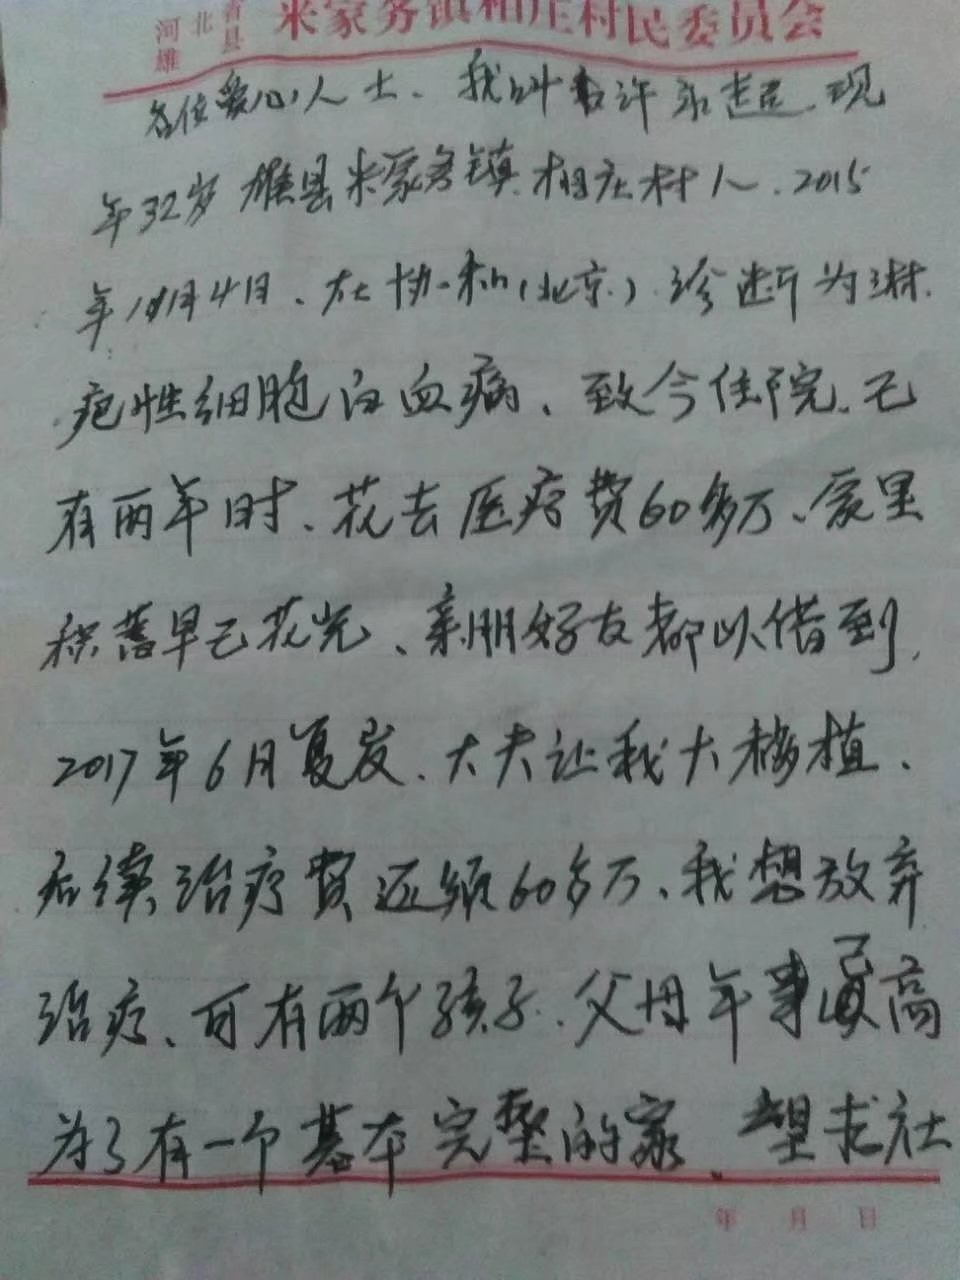 河北省
雄县
米家务镇相庄村民委员会
各位爱心人士、我叫许永超、现
年32岁雄县米家务镇相庄村人、2015
年10月4日、在协和(北京)诊断为淋
疤性细胞白血病、致今住院已
有两年时、花去医疗费60多万、家里
积蓄早已花光、亲朋好友都以借到,
2017年6月复发、大夫让我大移植、
后续治疗费还须60多万、我想放弃
治疗、可有两个孩子、父母年事已高
为了有一个基本完整的家、望求社
年 月 日